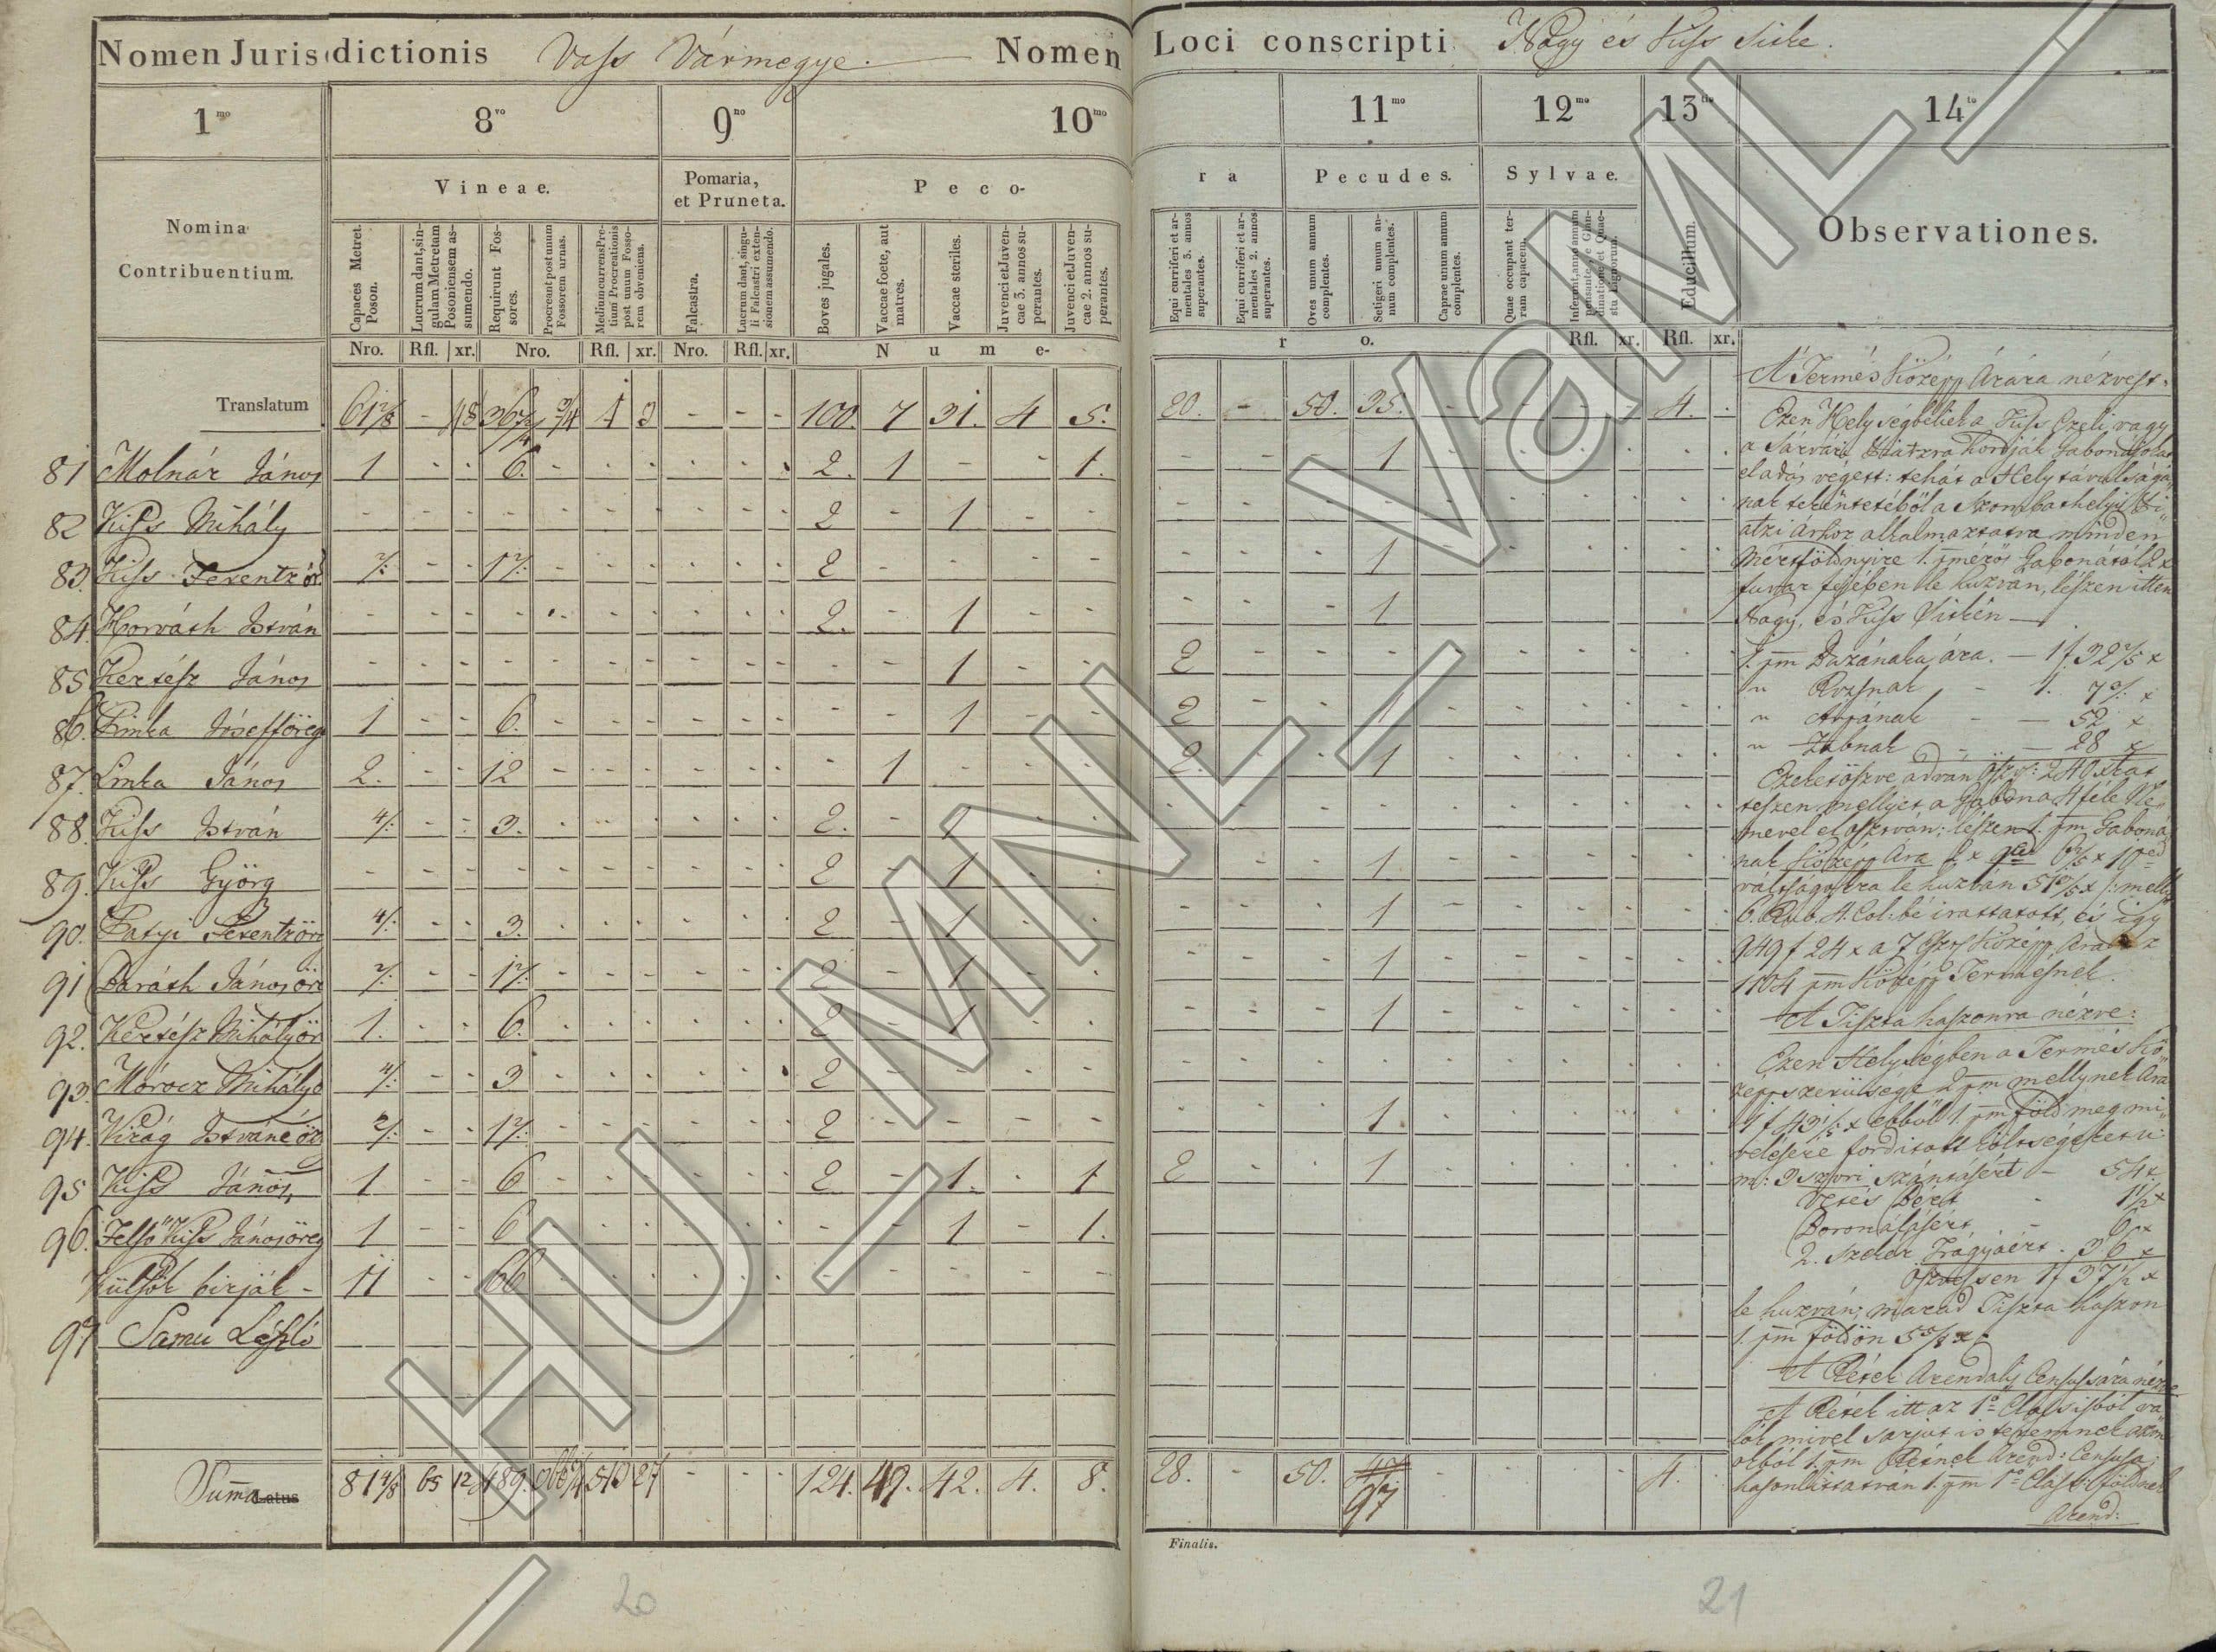 Nomen Jurisdictionis Vass Vármegye. Nomen
1mo 8vo 9no 10mo
Nomina Contribuentium.
Vineae.
Pomaria, et Pruneta.
Peco-
Capaces Metret. Poson.
Lucrum dant, singulam Metretam Posoniensem assumendo.
Requirunt Fossores.
Procreant post unum Fossorem urnas.
Medium currens Pretium Procreationis post unum Fossorem obveniens.
Falcastra.
Lucrum dant, singuli Falcastri extensionem assumendo.
Boves jugales.
Vaccae foete, aut matres.
Vaccae steriles.
Juvenci et Juvencae 3. annos superantes.
Juvenci et Juvencae 2. annos superantes.
Nro. Rfl. xr. Nro. Rfl. xr. Nro. Rfl. xr. Nume-
Translatum 61 2/8 - 48 - - - 100. 7 31. 4 5.
81 Molnár János 1 - - 6. - - - - - - 2. 1 - - 1.
82 Kiss Mihály - - - - - - - - - - 2 - 1 - -
83. Kiss Ferentz 2/: - - 1 2/: - - - - - - 2 - - - -
84 Horváth István - - - - - - - - - - 2. - 1 - -
85 Kertész János - - - - - - - - - - - - 1 - -
86. Linka Jósef öreg 1 - - 6. - - - - - - - - 1 - -
87. Linka János 2. - - 12 - - - - - - - 1 - - -
88. Kiss István 4/: - - 3. - - - - - - 2. - 1 - -
89. Kiss Györg - - - - - - - - - - 2 - 1 - -
90. Patyi Ferentz 4/: - - 3. - - - - - - 2 - 1 - -
91 Baráth János 2/: - - 1 2/: - - - - - - 2 - 1 - -
92. Kertész Mihály 1. - - 6. - - - - - - 2 - 1 - -
93. Mórocz Mihály 4/: - - 3 - - - - - - 2 - - - -
94. Virág Istváné 2/: - - 1 2/: - - - - - - 2 - - - -
95 Kiss János 1 - - 6 - - - - - - 2 - 1. - 1
96. Felső Kiss János öreg 1 - - 6 - - - - - - - - 1 - 1.
Külsők birják - 11 - - 66 - - - - - - - - - - -
97 Samu László
Summa Latus 81 4/8 65 12 489. 513 27 - - - 124. 42. 4. 8.
20
Loci conscripti Nagy és Kiss Sitke.
11mo 12mo 13tio 14to
ra
Pecudes.
Sylvae.
Educillum.
Observationes.
Equi curriferi et armentales 3. annos superantes.
Equi curriferi et armentales 2. annos superantes.
Oves unum annum complentes.
Setigeri unum annum complentes.
Caprae unum annum complentes.
Quae occupant terram capacem.
ro. Rfl. xr. Rfl. xr.
20. - 50. 35. - - - - 4. -
- - - 1
- - - 1
- - - 1
2 - - -
2 - - 1
2. - - 1
- - - 1
- - - 1
- - - 1
- - - 1
- - - 1
2 - - 1
28. - 50. - - - - 4. -
97
A Termés Közép Árára nézvest.
Ezen Helységbéliek a Kiss Czeli, vagy
a Sárvári Piatzra hordják Gabonájokat
eladás végett: tehát a Hely távulságá
nak tekéntetéből a Szombathelyi Pi
atzi Árhoz alkalmaztatva minden
mértföldnyire 1. pm Gabonától 2 x
fuvar fejében le huzván, lészen itten
Nagy, és Kiss Sitkén —
1. pm Buzának ára. — 1 f 32 2/5 x
" Rozsnak - 1. 7
" Árpának - — 52 x
" Zabnak - — 28 x
Ezeket öszve adván
teszen mellyet a Gabona 4 féle Ne
mével el osztván: lészen 1. pm Gaboná
nak Közép Ára
váltságára le huzván
6. Rub. 4. Col: bé irattatott, és így
949 f 24 x a Közép Ára
1104 pm Közép Termésnek.
A Tiszta haszonra nézve:
Ezen Helységben a Termés Kö
zépszerűsége 2 pm mellynek Ára
1 f 43 1/5 x ebből 1. pm föld meg mi
velésére fordított költségeket u:
m: 3 szori szántásért - 54 x.
Vetés Bért - 1 1/2 x
Boronálásért - 6 x
2. szekér Trágyáért. 36 x
öszvessen 1 f 37 1/2 x
le huzván; marad Tiszta haszon
1. pm földön
A Rétek Árendalis Censussára nézve
A Rétek itt az 1o Classisból va
lók mivel sarjut is teremnek azon
okból 1. pm Rétnek Arend: Censusa
hasonlittatván 1. pm 1o Class: földnek
Arend:
Finalis.
21
HU_MNL_VaML_